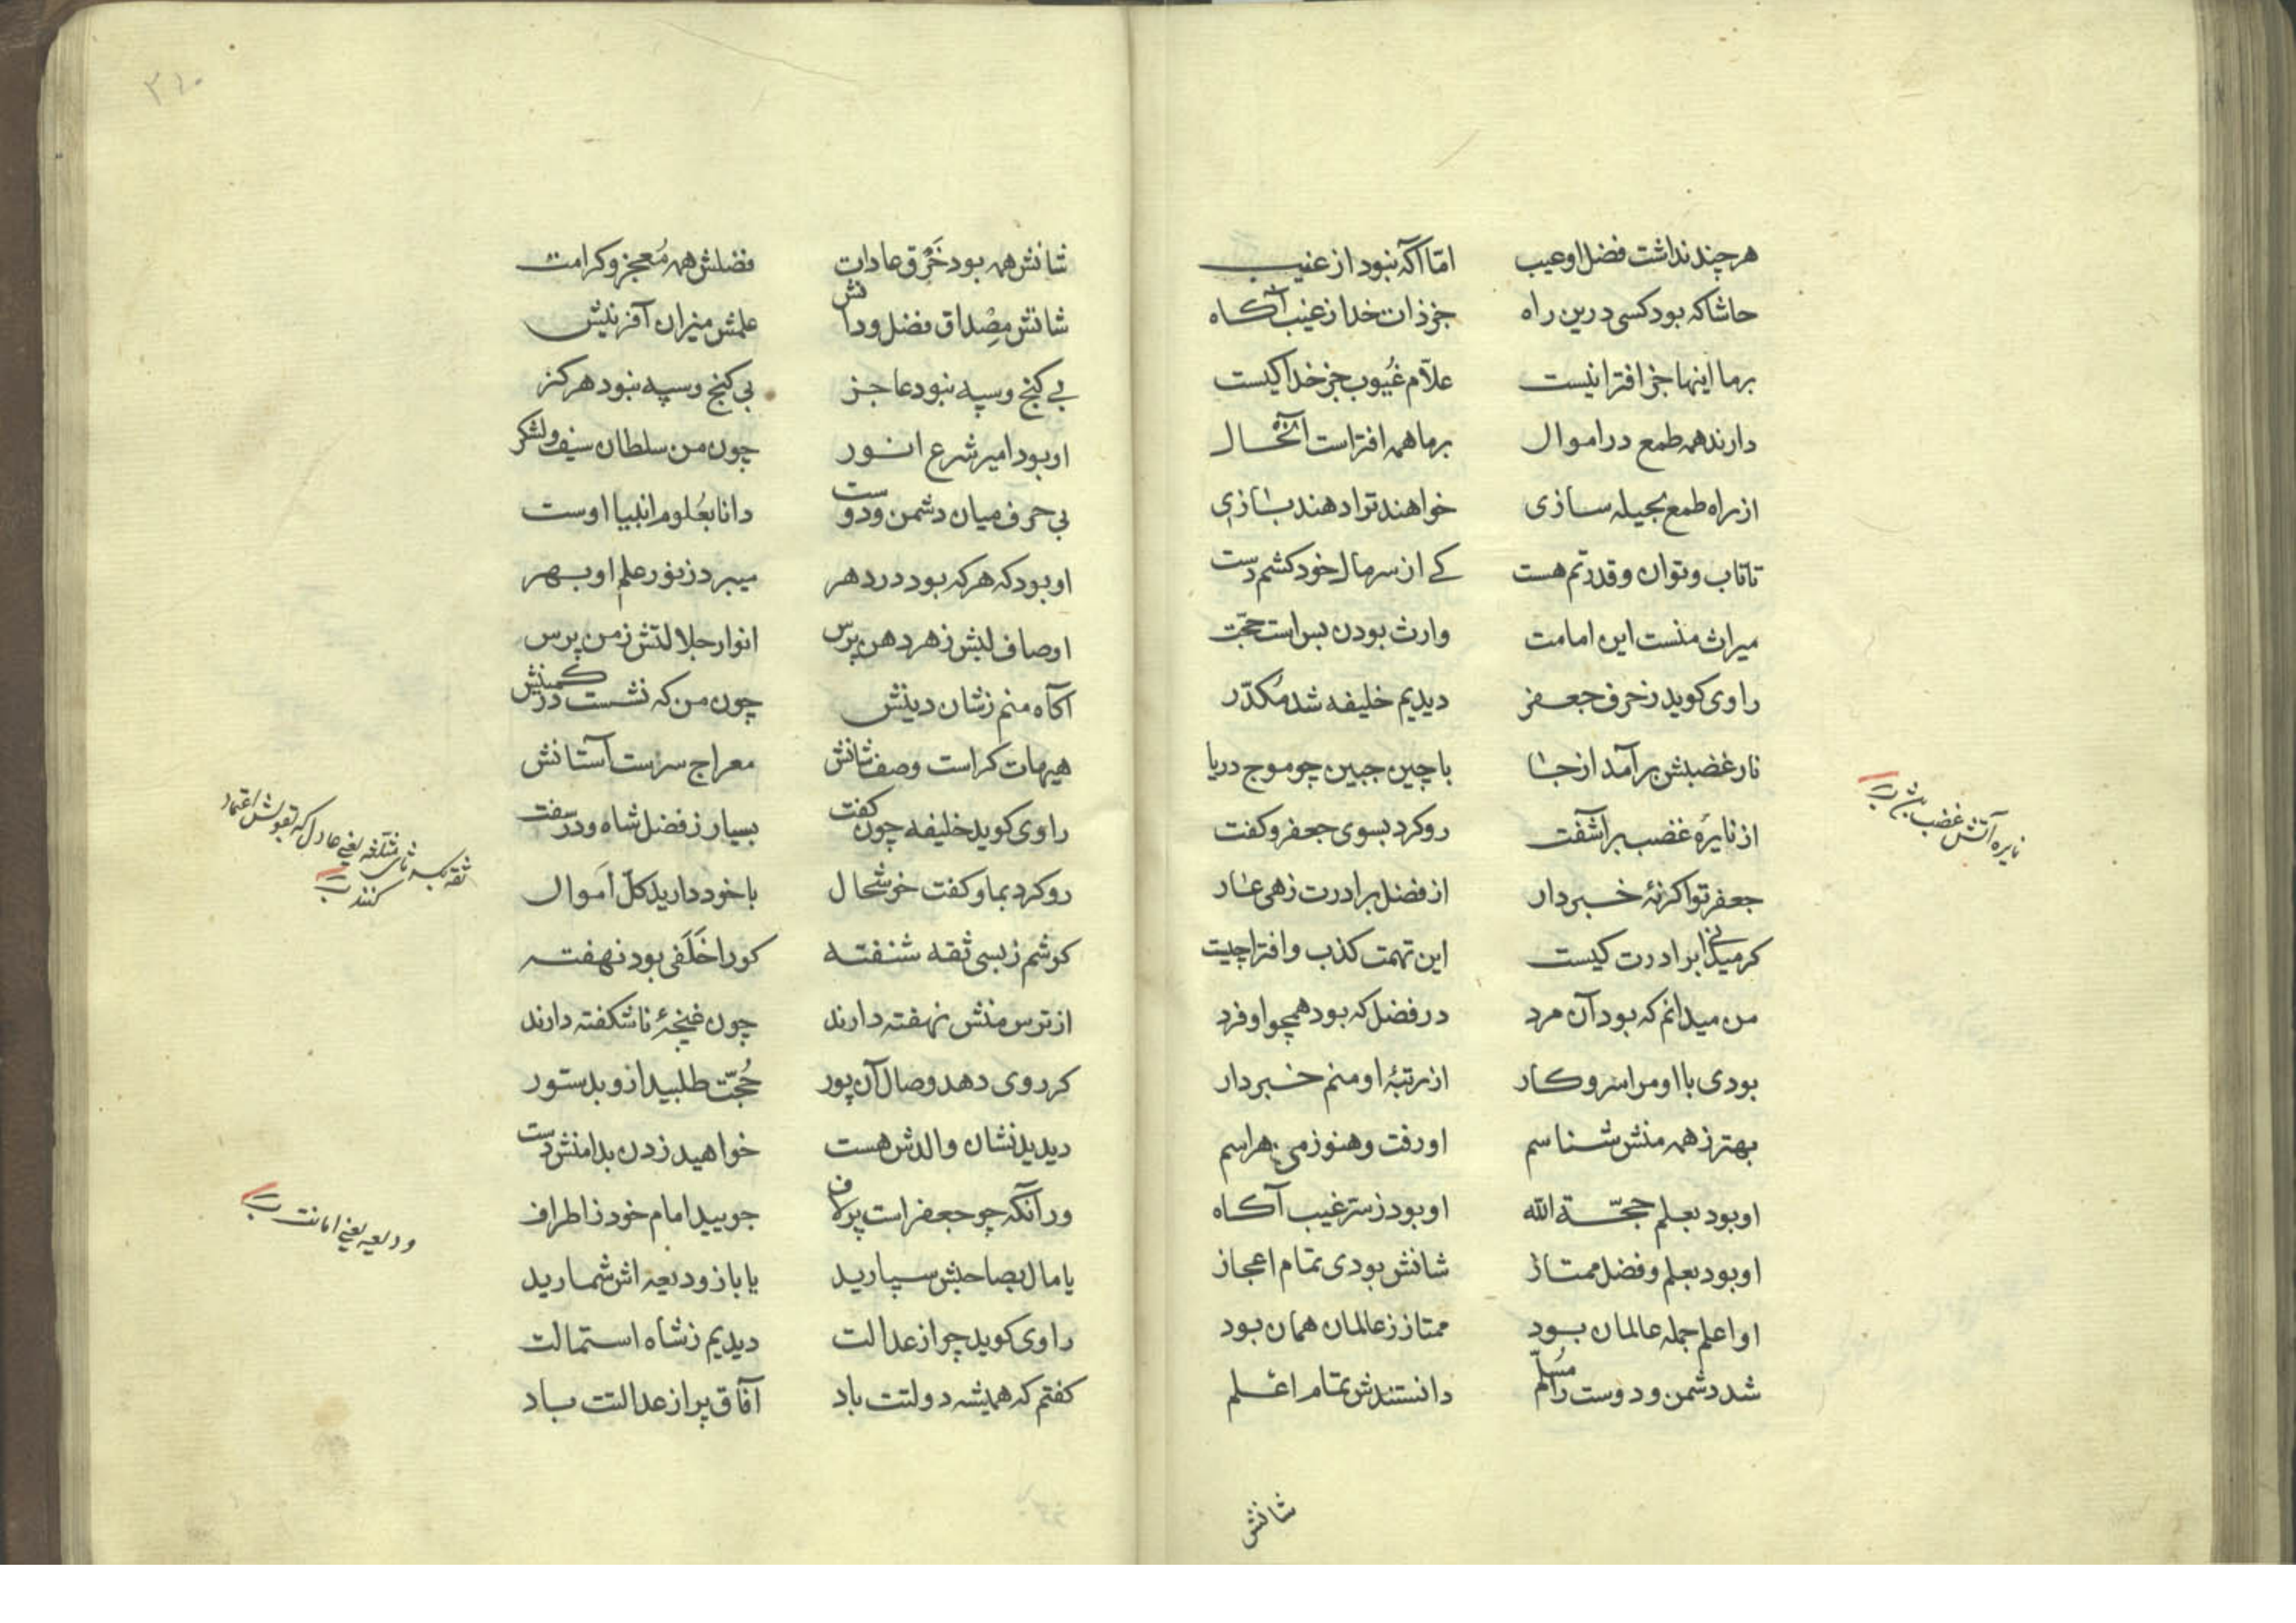 هر چند نداشت فضل او عیب امّا آکه نبود از غیب
حاشا که بود کسی درین راه جز ذات خدا ز غیب آکاه
بر ما اینها جز افترا نیست علّام غُیوب جز خدا کیست
دارند همه طمع در اموال بر ما همه افتراست
از راه طمع بحیله سازی خواهند ترا دهند بازی
تا تاب و توان و قدرتم هست کے از سر مال خود کشم دست
میراث منست این امامت وارث بودن بس است حجّت
راوی کوید ز حرف جعفر دیدیم خلیفه شد مُکدّر
نار غضبش بر آمد از جا با چین جبین چو موج دریا
از نایرهٔ غضب بر آشفت رو کرد بسوی جعفر و کفت
جعفر تو اکر نهٔ خبردار از فضل برادرت زهی عار
کر میدانی برادرت کیست این تهمت کذب و افترا چیست
من میدانم که بود آن مرد در فضل که بود همچو او فرد
بودی با او مرا سر و کار از رتبهٔ او منم خبردار
بهتر ز همه منش شناسم او رفت و هنوز می هراسم
او بود بعلم حجّة الله او بود ز سرّ غیب آکاه
او بود بعلم و فضل ممتاز شانش بودی تمام اعجاز
او اعلم جمله عالمان بود ممتاز ز عالمان همان بود
شد دشمن و دوست را مُسلّم دانستندش تمام اعلم
نایره آتش غضب
شانش
٣١٠
شانش همه بود خَرْق عادات فضلش همه مُعجز و کرامت
شانش مِصْداق فضل و دانش علمش میزان آفرینش
بے کنج و سپه نبود عاجز بی کنج و سپه نبود هرکز
او بود امیر شرع انور چون من سلطان سیف و لشکر
بی حرف میان دشمن و دوست دانا بعُلوم انبیا اوست
او بود که هر که بود در دهر میبرد ز نور علم او بهر
اوصاف لبش ز هر دهن پرس انوار جلالتش ز من پرس
آکاه منم ز شان دینش چون من که نشست در کمینش
هیهات کراست وصف شانش معراج سر است آستانش
راوی کوید خلیفه چون کفت بسیار ز فضل شاه و در سفت
رو کرد بما و کفت خوشحال با خود دارید کلّ اموال
کوشم ز بسی ثقه شنفته کو را خَلَفی بود نهفته
از ترس منش نهفته دارند چون غنچهٔ ناشکفته دارند
کر روی دهد وصال آن پور حُجّت طلبید ازو بدستور
دیدید نشان والدش هست خواهید زدن بدامنش دست
ور آنکه چو جعفر است پر لاف جویید امام خود ز اطراف
یا مال بصاحبش سپارید یا باز ودیعه اش شمارید
راوی کوید چو از عدالت دیدیم ز شاه استمالت
کفتم که همیشه دولتت باد آفاق پر از عدالتت باد
ثقه بکسر ثای مثلثه یعنی عادل که بقولش اعتماد
کنند
ودیعه یعنی امانت